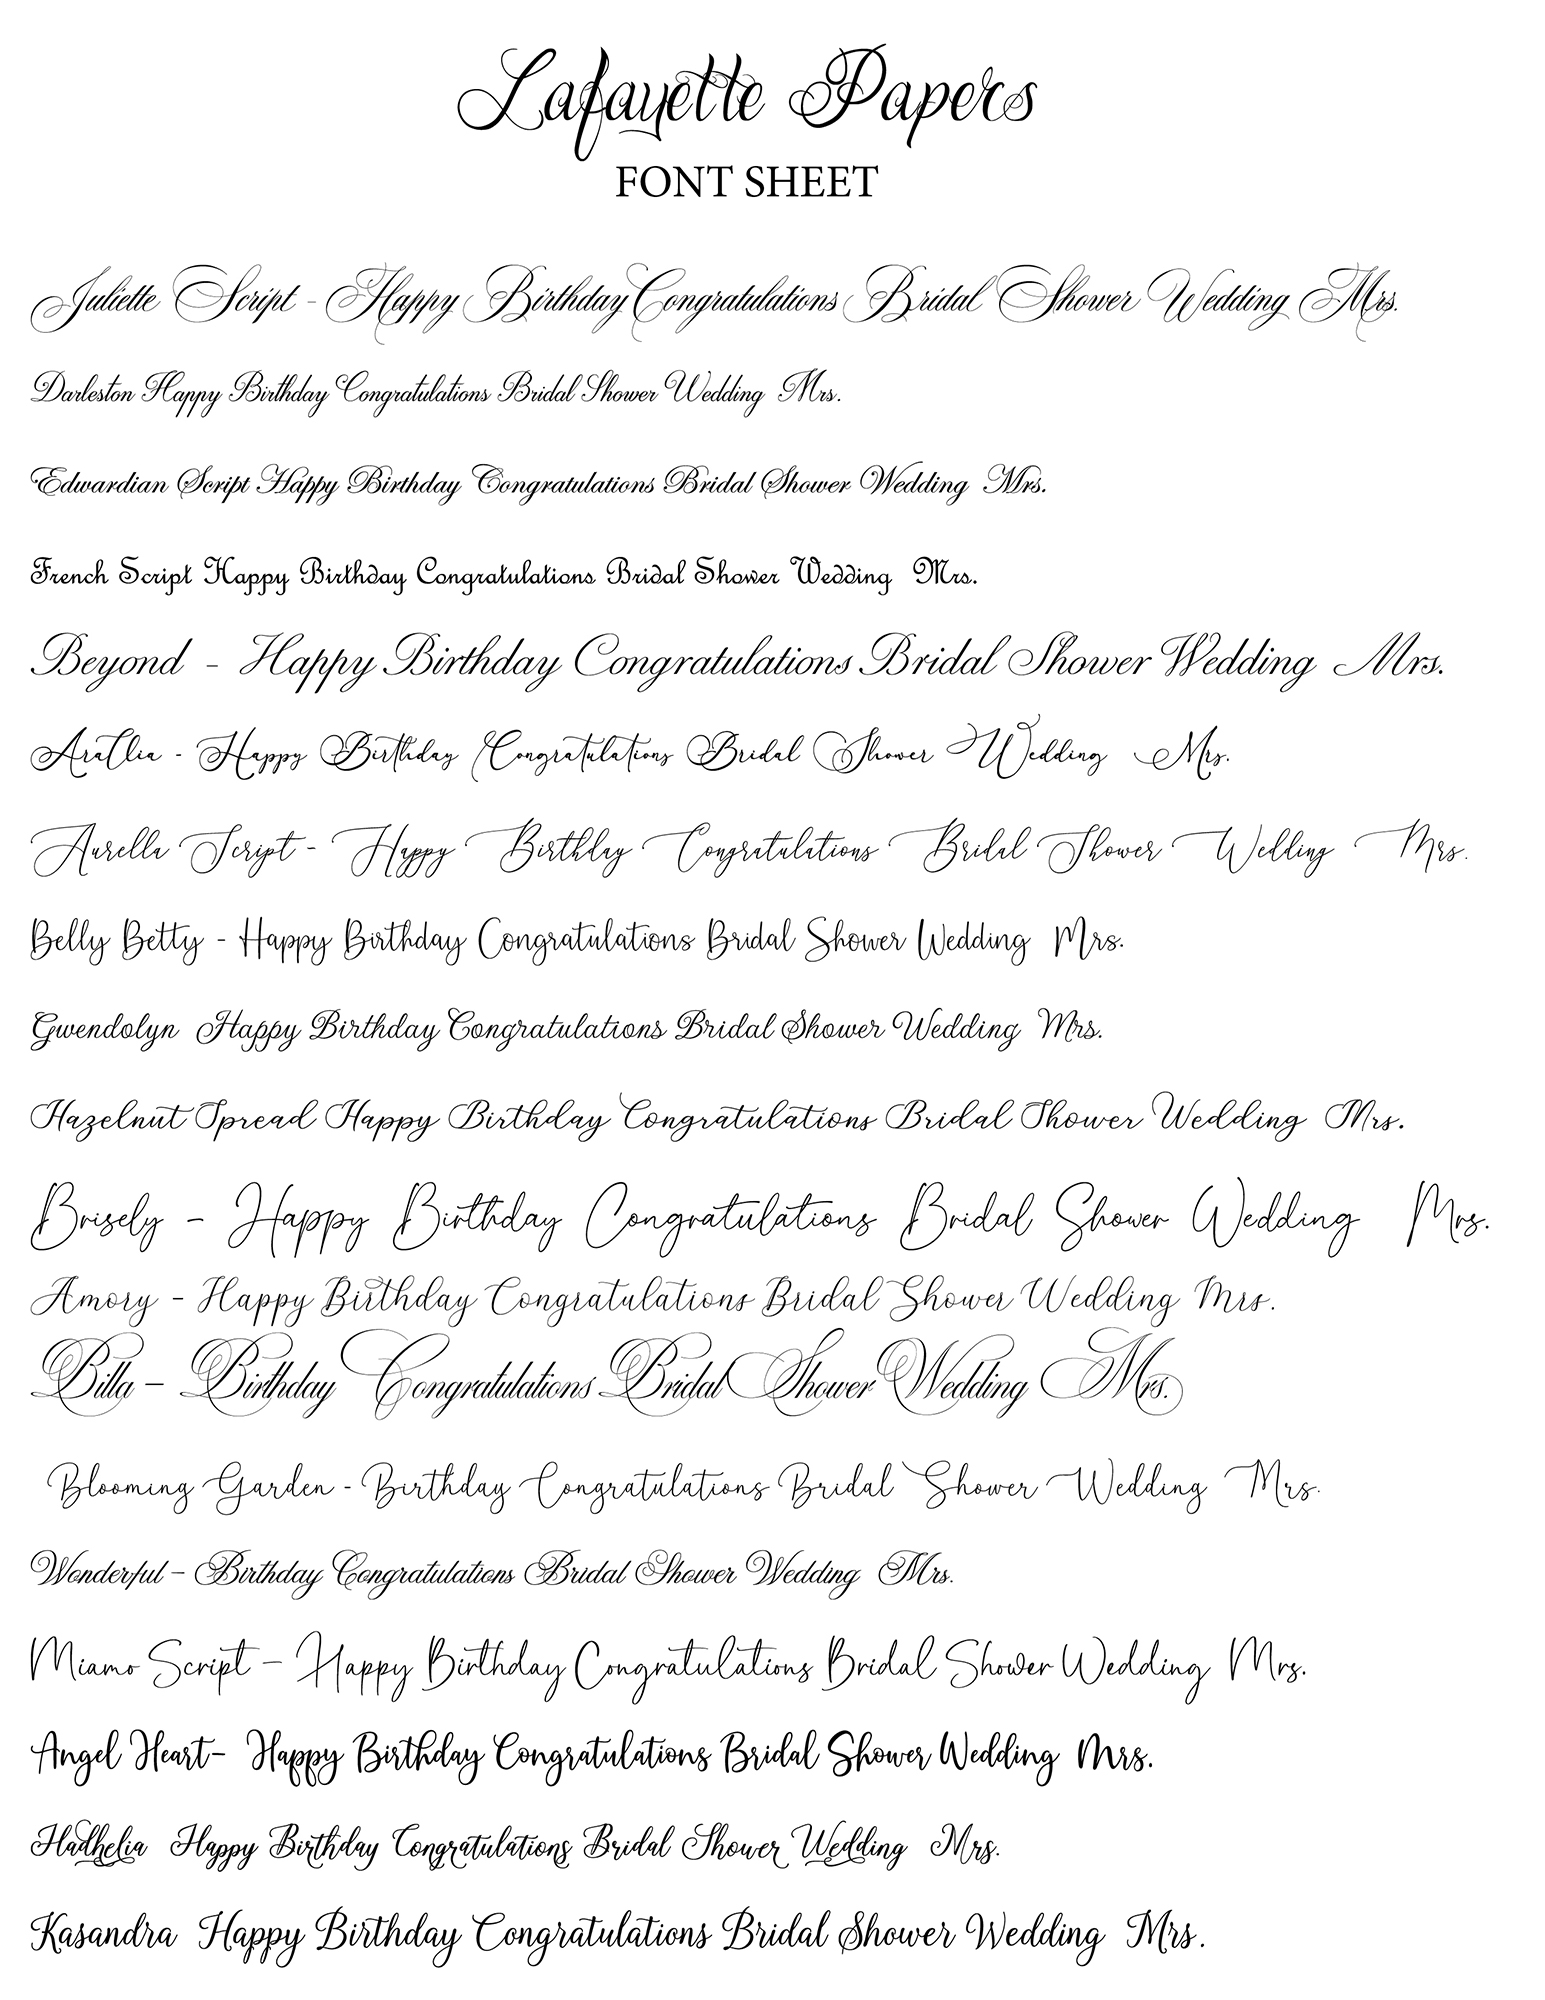 Lafayette Papers
FONT SHEET
Juliette Script - Happy Birthday Congratulations Bridal Shower Wedding Mrs.
Darleston Happy Birthday Congratulations Bridal Shower Wedding Mrs.
Edwardian Script Happy Birthday Congratulations Bridal Shower Wedding Mrs.
French Script Happy Birthday Congratulations Bridal Shower Wedding Mrs.
Beyond - Happy Birthday Congratulations Bridal Shower Wedding Mrs.
- Happy Birthday Congratulations Bridal Shower Wedding Mrs.
Aurella Script - Happy Birthday Congratulations Bridal Shower Wedding Mrs.
Belly Betty - Happy Birthday Congratulations Bridal Shower Wedding Mrs.
Gwendolyn Happy Birthday Congratulations Bridal Shower Wedding Mrs.
Hazelnut Spread Happy Birthday Congratulations Bridal Shower Wedding Mrs.
Brisely - Happy Birthday Congratulations Bridal Shower Wedding Mrs.
Amory - Happy Birthday Congratulations Bridal Shower Wedding Mrs.
Billa - Birthday Congratulations Bridal Shower Wedding Mrs.
Blooming Garden - Birthday Congratulations Bridal Shower Wedding Mrs.
Wonderful - Birthday Congratulations Bridal Shower Wedding Mrs.
Miamo Script - Happy Birthday Congratulations Bridal Shower Wedding Mrs.
Angel Heart- Happy Birthday Congratulations Bridal Shower Wedding Mrs.
Hadhelia Happy Birthday Congratulations Bridal Shower Wedding Mrs.
Kasandra Happy Birthday Congratulations Bridal Shower Wedding Mrs.